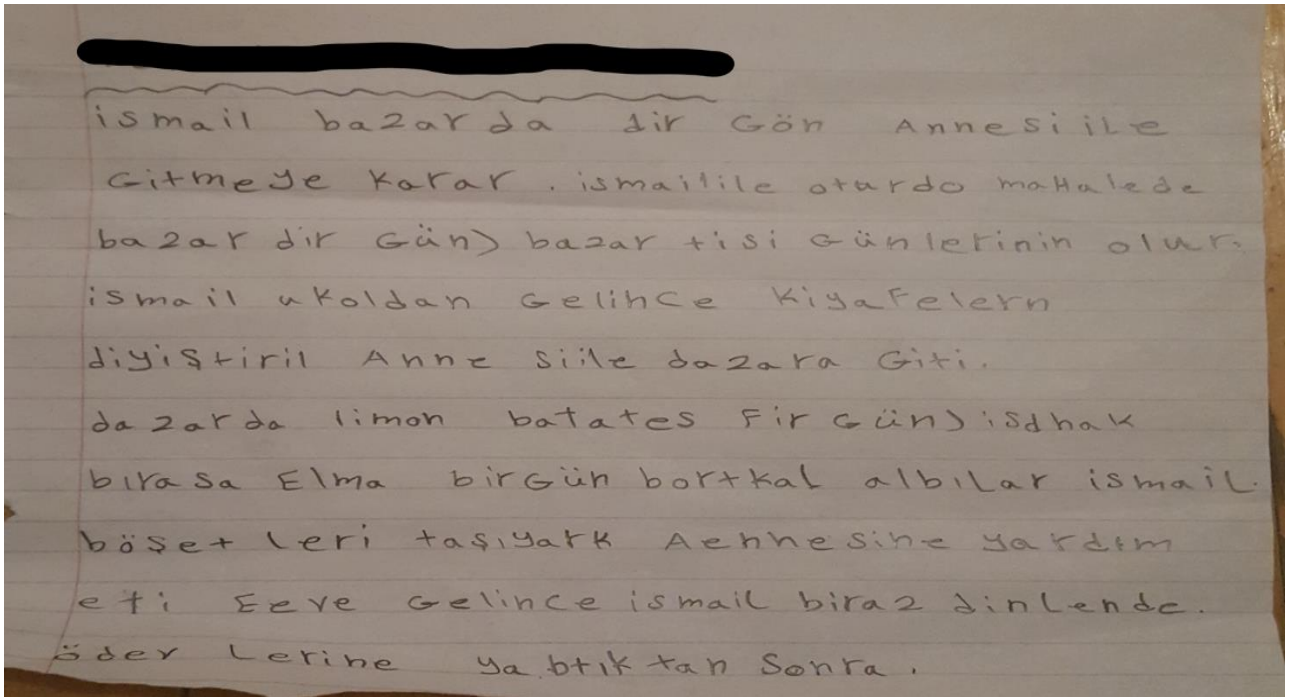 ismail bazarda dir Gön Annesi ile
Gitmeye Karar. ismailile oturdo maHalede
bazar dir Gün) bazar tisi Günlerinin olur.
ismail ukoldan Gelince Kiyafelern
diyiştiril Anne siile dazara Giti.
dazarda limon batates Fir Gün) isdhak
bırasa Elma birGün bortkal albılar ismail.
böşet leri taşıyark Aennesine yardım
eti Eeve Gelince ismail biraz dinlende.
öder lerine yabtık tan Sonra.